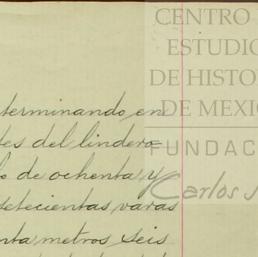 CENTRO
ESTUDIO
DE HISTO
DE MEXI
FUNDAC
Carlos
terminando en
tes del lindero
o de ochenta y
setecientas varas
nta metros seis